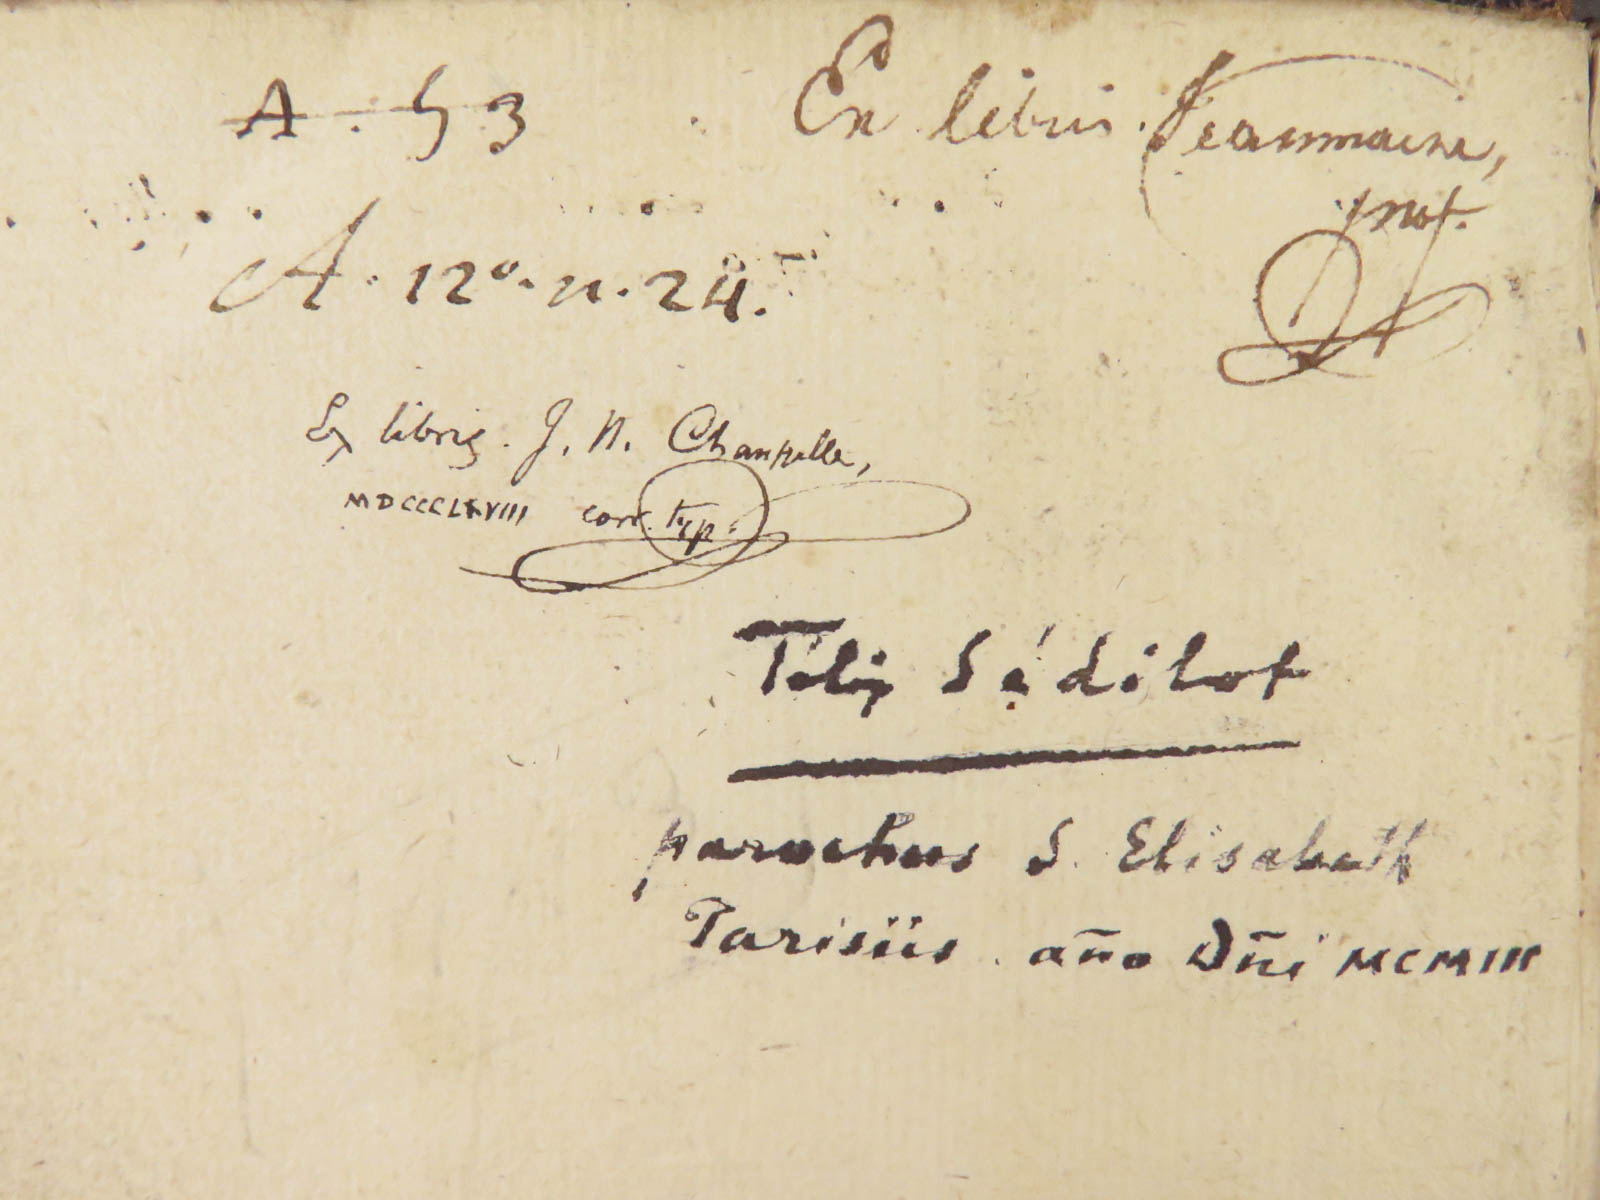 A. 53
Ex libris Jeannmaire,
prof.
A. 12º. n. 24.
Ex libris. J. N. Chanpelle,
MDCCCLXVIII corr. typ.
Felix Sédilot
parochus S. Elisabeth
Parisiis. año Dñi MCMIII